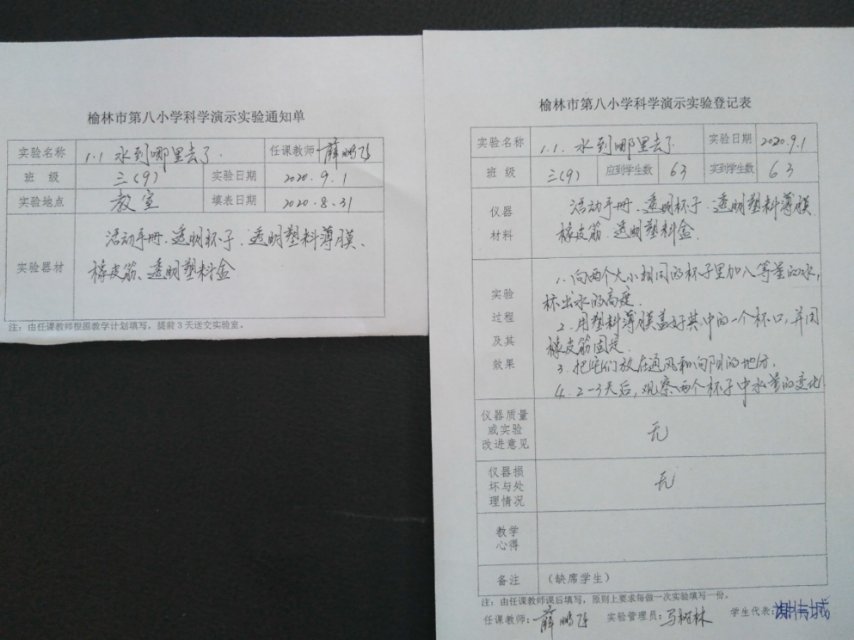 榆林市第八小学科学演示实验通知单
实验名称 1.1 水到哪里去了. 任课教师 薛鹏飞
班 级 三(9) 实验日期 2020.9.1
实验地点 教室 填表日期 2020.8.31
实验器材
活动手册、透明杯子、透明塑料薄膜、
橡皮筋、透明塑料盒
注：由任课教师根据教学计划填写，提前3天送交实验室。
榆林市第八小学科学演示实验登记表
实验名称 1.1. 水到哪里去了 实验日期 2020.9.1
班 级 三(9) 应到学生数 63 实到学生数 63
仪器
材料
活动手册、透明杯子、透明塑料薄膜
橡皮筋、透明塑料盒
实验
过程
及其
效果
1. 向两个大小相同的杯子里加入等量的水,
标出水的高度.
2. 用塑料薄膜盖好其中的一个杯口, 并用
橡皮筋固定.
3. 把它们放在通风和向阳的地方.
4. 2-3天后, 观察两个杯子中水量的变化
仪器质量
或实验
改进意见
无
仪器损
坏与处
理情况
无
教学
心得
备注 （缺席学生）
注：由任课教师课后填写，原则上要求每做一次实验填写一份。
任课教师: 薛鹏飞 实验管理员: 马树林 学生代表: